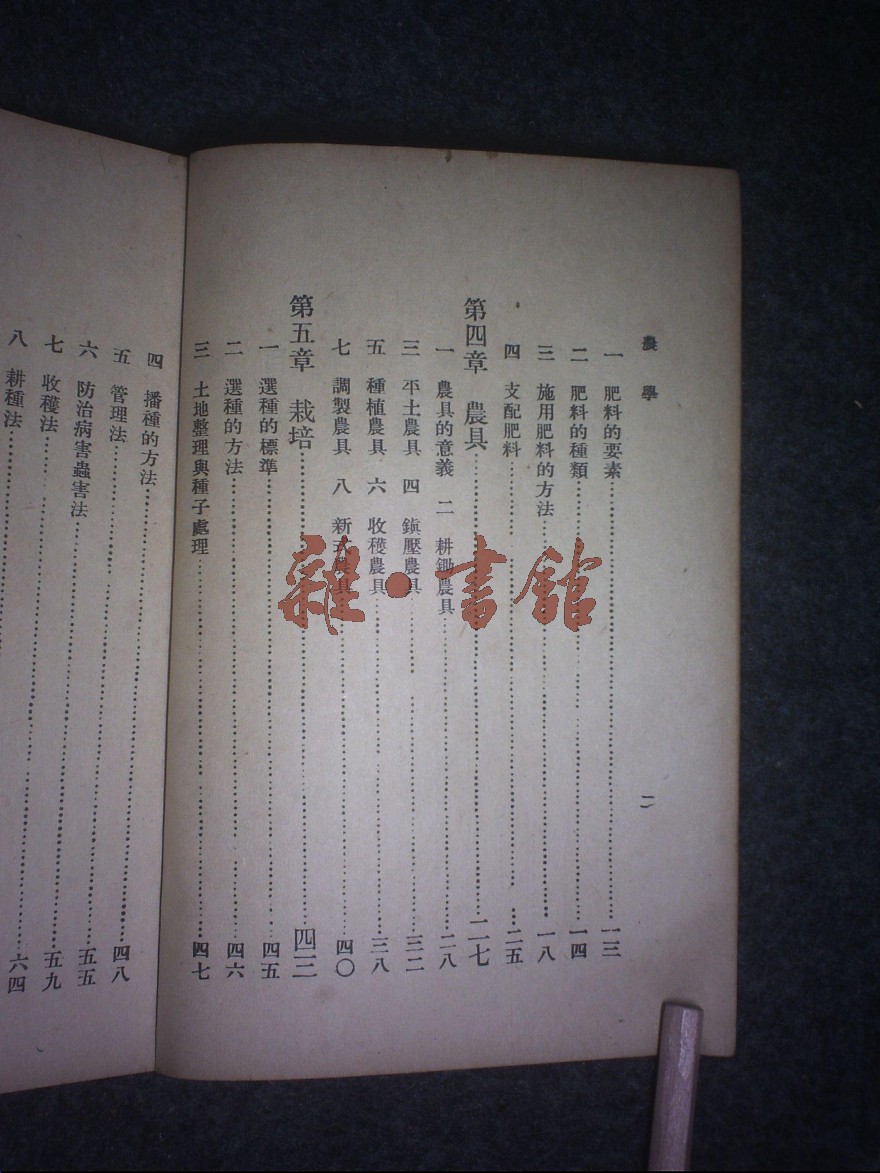 農學
二
一 肥料的要素…………一三
二 肥料的種類…………一四
三 施用肥料的方法…………一八
四 支配肥料…………二五
第四章 農具…………二七
一 農具的意義 二 耕鋤農具…………二八
三 平土農具 四 鎭壓農具…………三二
五 種植農具 六 收穫農具…………三八
七 調製農具 八 新式農具…………四〇
第五章 栽培…………四三
一 選種的標準…………四五
二 選種的方法…………四六
三 土地整理與種子處理…………四七
四 播種的方法…………四八
五 管理法…………四八
六 防治病害蟲害法…………五五
七 收穫法…………五九
八 耕種法…………六四
雜·書館